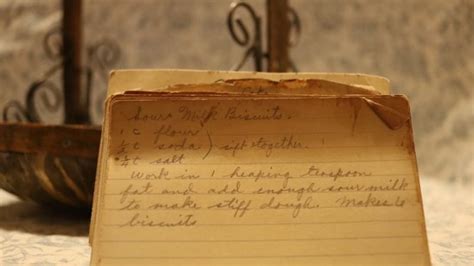 Sour Milk Biscuits.
1 c flour
½ c soda ) sift together.
½ c salt
Work in 1 heaping teaspoon
fat and add enough sour milk
to make stiff dough. Makes 6
biscuits